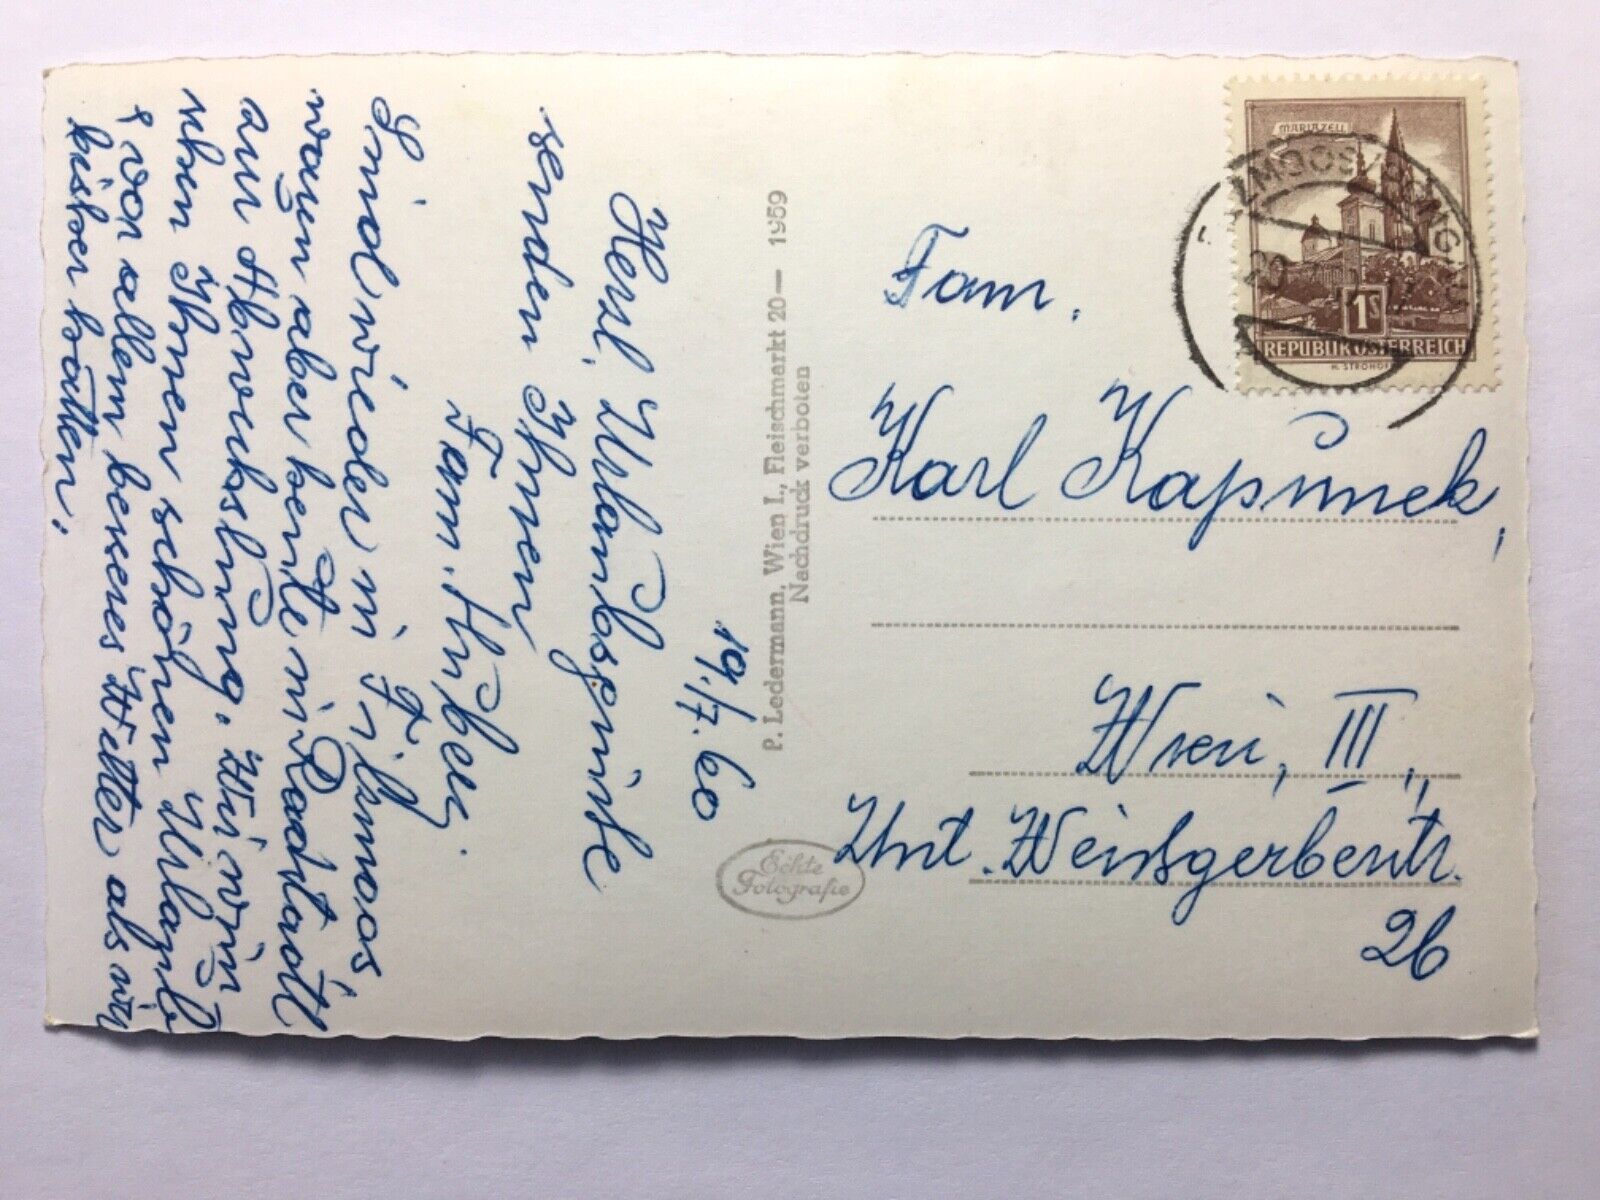 19./7.60
Herzl. Urlaubsgrüße
senden Ihnen
Fam. Huber.
Sind wieder in Filzmoos,
waren aber heute in Radstadt
zur Abwechslung. Wir wün
schen Ihnen schönen Urlaub
& vor allem besseres Wetter als wir
bisher hatten.
P. Ledermann, Wien I., Fleischmarkt 20— 1959
Nachdruck verboten
Echte
Fotografie
MARIAZELL
1S
REPUBLIK ÖSTERREICH
Fam.
Karl
Wien, III.,
Unt. Weißgerberstr.
26